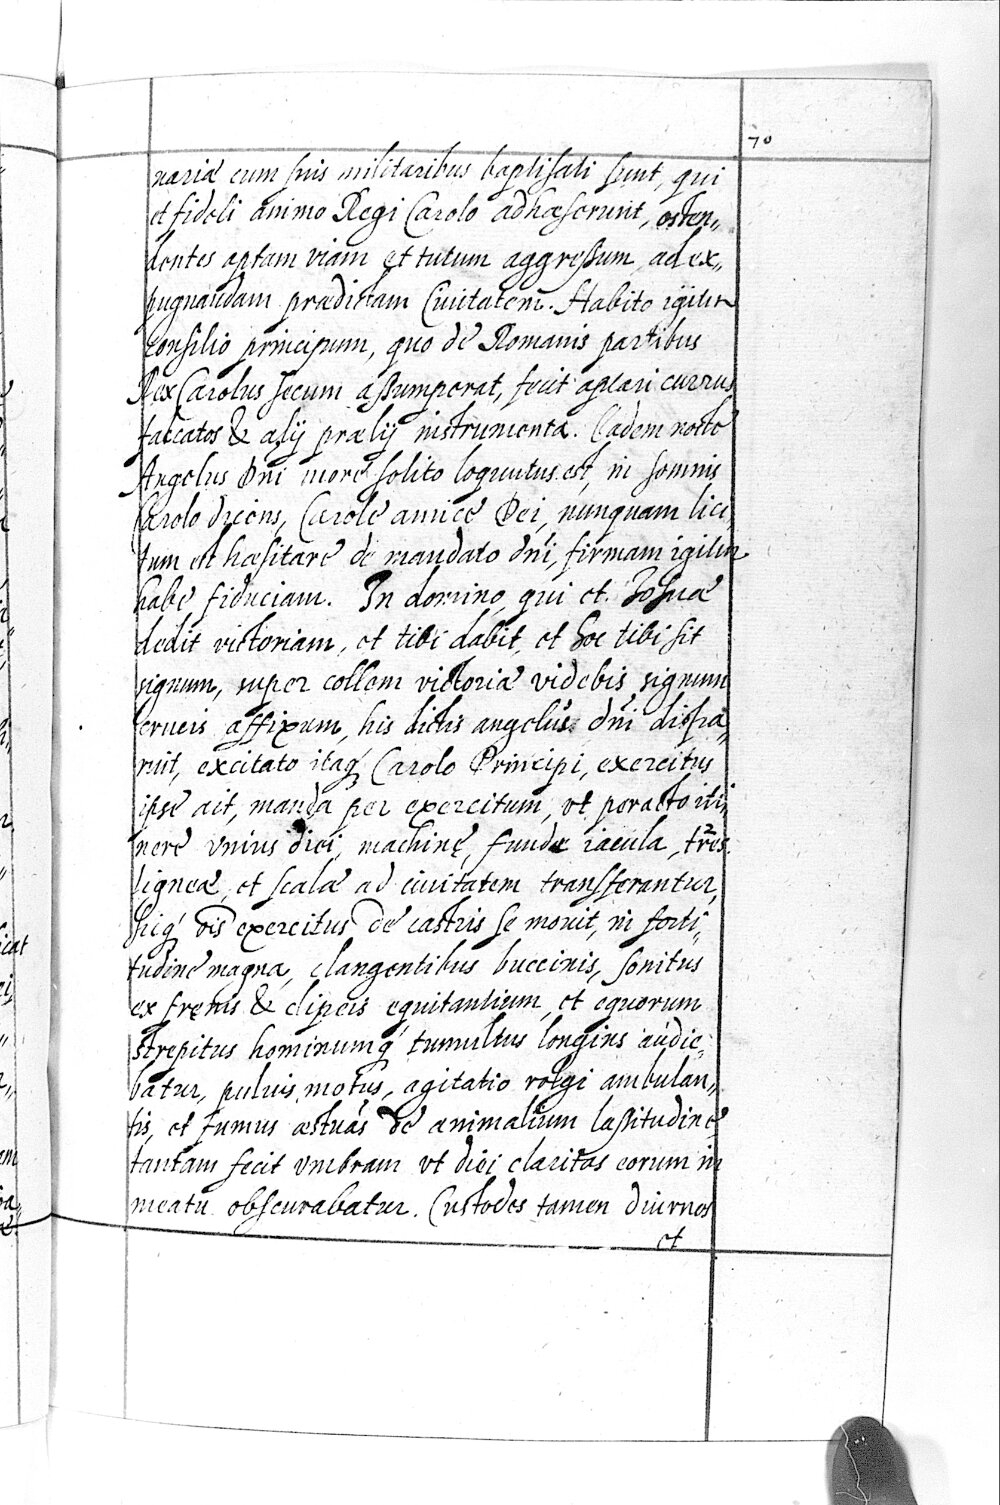 70
nariæ cum suis militaribus baptisati sunt, qui
et fideli animo Regi Carolo adhæserunt, osten„
dentes aptam viam et tutum aggressum ad ex„
pugnandam prædictam Ciuitatem. Habito igitur
consilio principum, quo de Romanis partibus
Rex Carolus secum assumperat, fecit aptari currus
falcatos & alij prælij instrumenta. Eadem nocte
Angelus Dni more solito loquutus est, in somnis
Carolo dicens, Carole amice Dei, nunquam lici„
tum est hæsitare de mandato dni, firmam igitur
habe fiduciam. In domino qui et Iosuæ
dedit victoriam, et tibi dabit, et hoc tibi sit
signum, super collem victoriæ videbis signum
crucis affixum, his dictis angelus dni dispa„
ruit, excitato itaq́ Carolo Principi, exercitus
ipse ait, manda per exercitum, vt peracto iti„
nere vnius diei, machinę, fundæ iacula, trẽs
ligneæ, et scalæ ad ciuitatem transferantur,
sicq́ oĩs exercitus de castris se mouit, in forti„
tudine magna, clangentibus buccinis, sonitus
ex frenis & clipeis equitantium, et equorum
strepitus hominumq́ tumultus longius audie„
batur, puluis motus, agitatio ambulan„
tis, et fumus æstuãs de animalium lassitudine
tantam fecit vmbram vt diei claritas eorum in
meatu obscurabatur. Custodes tamen diurnos
et